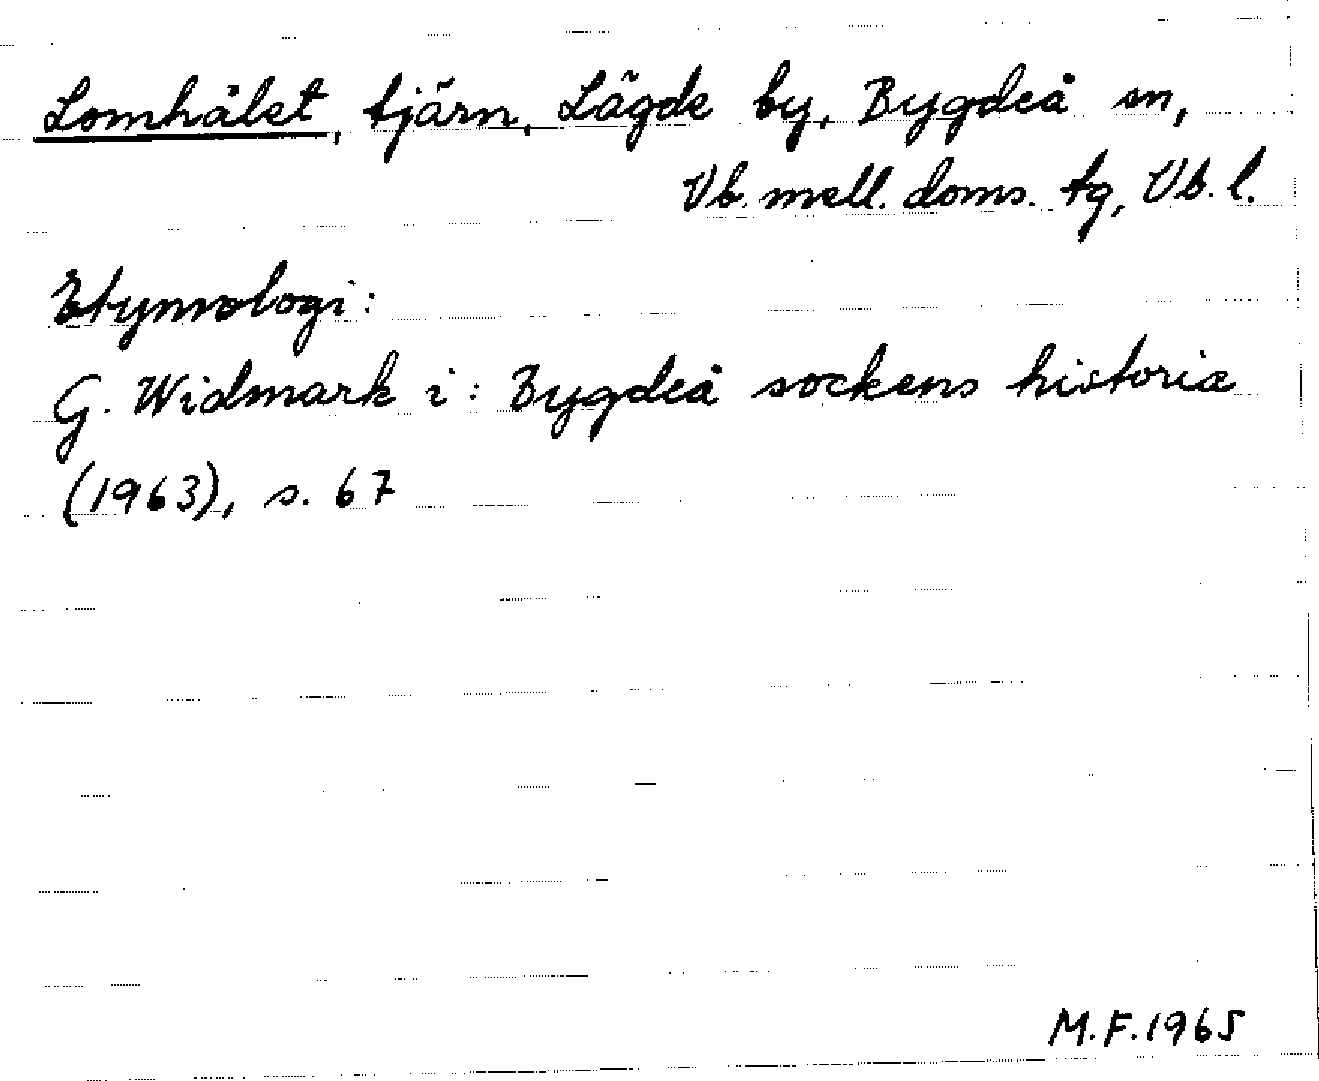 Lomhålet, tjärn, Lägde by, Bygdeå sn,
Vb. mell. doms. tg, Vb. l.
Etymologi:
G. Widmark i: Bygdeå sockens historia
(1963), s. 67
M.F.1965